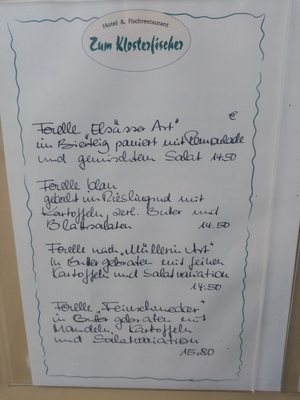 Hotel & Fischrestaurant
Zum Klosterfischer
€
Forelle "Elsässer Art"
im Bierteig paniert mit Remoulade
und gemischtem Salat 14.50
Forelle blau
gekocht im Rieslingsud mit
Kartoffeln, zerl. Butter und
Blattsalaten 14.50
Forelle nach "Müllerin Art"
in Butter gebraten mit feinen
Kartoffeln und Salatvariation
14.50
Forelle "Feinschmecker"
in Butter gebraten mit
Mandeln, Kartoffeln
und Salatvariation
15.80